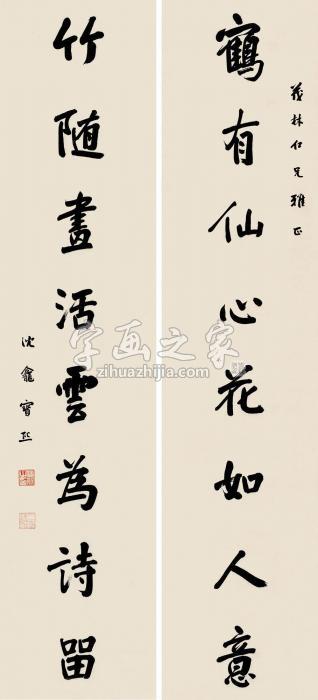 茂林仁兄雅正
鶴有仙心花如人意
竹随畫活雲為詩留
沈盦寶熙
字画之家
zihuazhijia.com